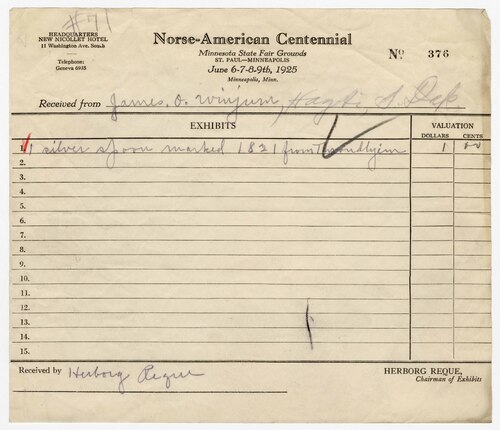 #71
HEADQUARTERS
NEW NICOLLET HOTEL
11 Washington Ave. South
Telephone:
Geneva 6935
Norse-American Centennial
Minnesota State Fair Grounds
ST. PAUL—MINNEAPOLIS
June 6-7-8-9th, 1925
Minneapolis, Minn.
No 376
Received from James O. Winjum
EXHIBITS
VALUATION
DOLLARS CENTS
1. 1 silver spoon marked 1821 from 1 00
2.
3.
4.
5.
6.
7.
8.
9.
10.
11.
12.
13.
14.
15.
Received by Herborg Reque
HERBORG REQUE,
Chairman of Exhibits